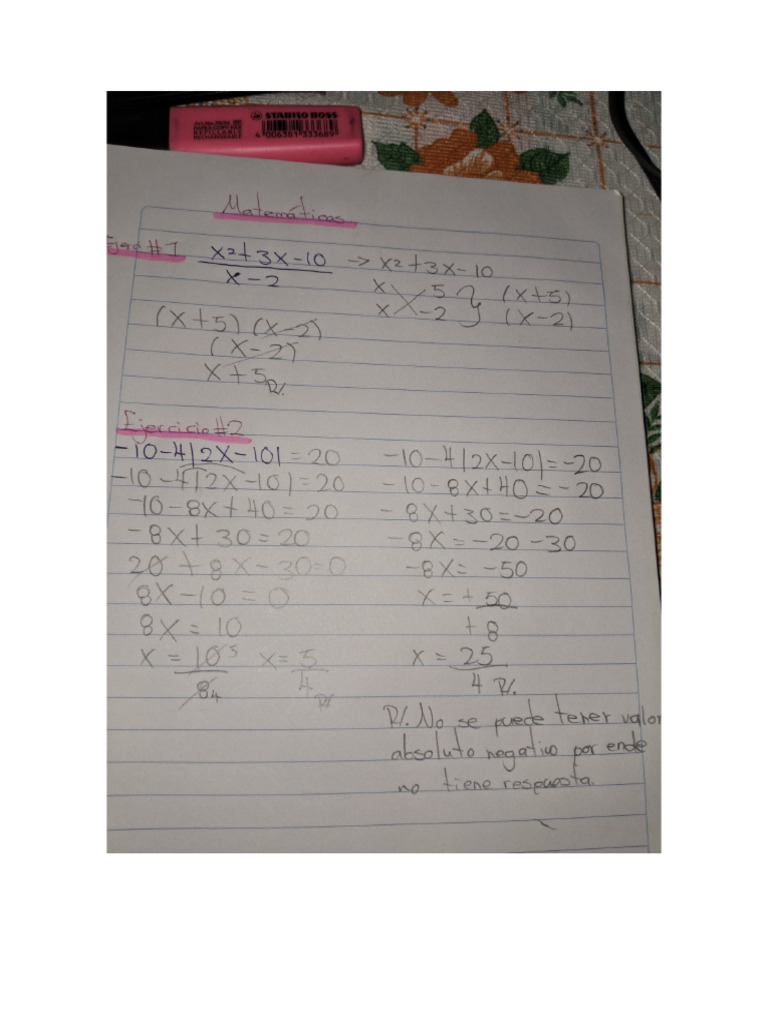 STABILO BOSS
4 006381 333689
Matemáticas
#1 x²+3x-10 → x²+3x-10
x-2
x 5 } (x+5)
x -2 (x-2)
(x+5)(x-2)
(x-2)
x+5 R/.
Ejercicio #2
-10-4|2x-10|=20
-10-4|2x-10|=20
-10-8x+40=20
-8x+30=20
20+8x-30=0
8x-10=0
8x=10
x=10 5 x=5
84 4 R/.
-10-4|2x-10|=-20
-10-8x+40=-20
-8x+30=-20
-8x=-20-30
-8x=-50
x=+50
+8
x=25
4 R/.
R/. No se puede tener valor
absoluto negativo por ende
no tiene respuesta.